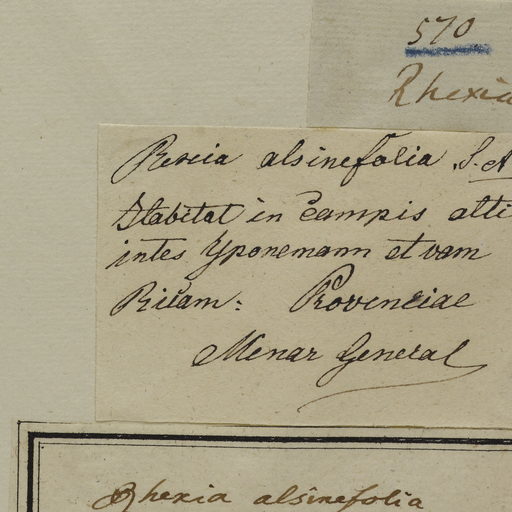 570
Rhexia
Rexia alsinefolia S. A
Habitat in Campis alti
intes Yponemann et vam
Ricam: Provenciae
Menar General
Rhexia alsinefolia